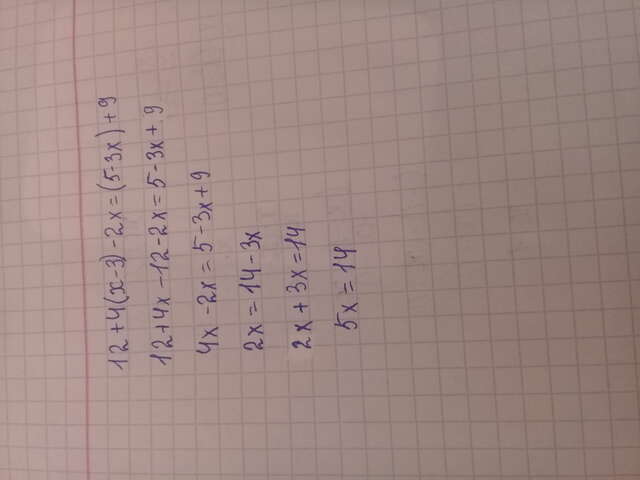 12+4(x-3)-2x=(5-3x)+9
12+4x-12-2x=5-3x+9
4x-2x=5-3x+9
2x=14-3x
2x+3x=14
5x=14